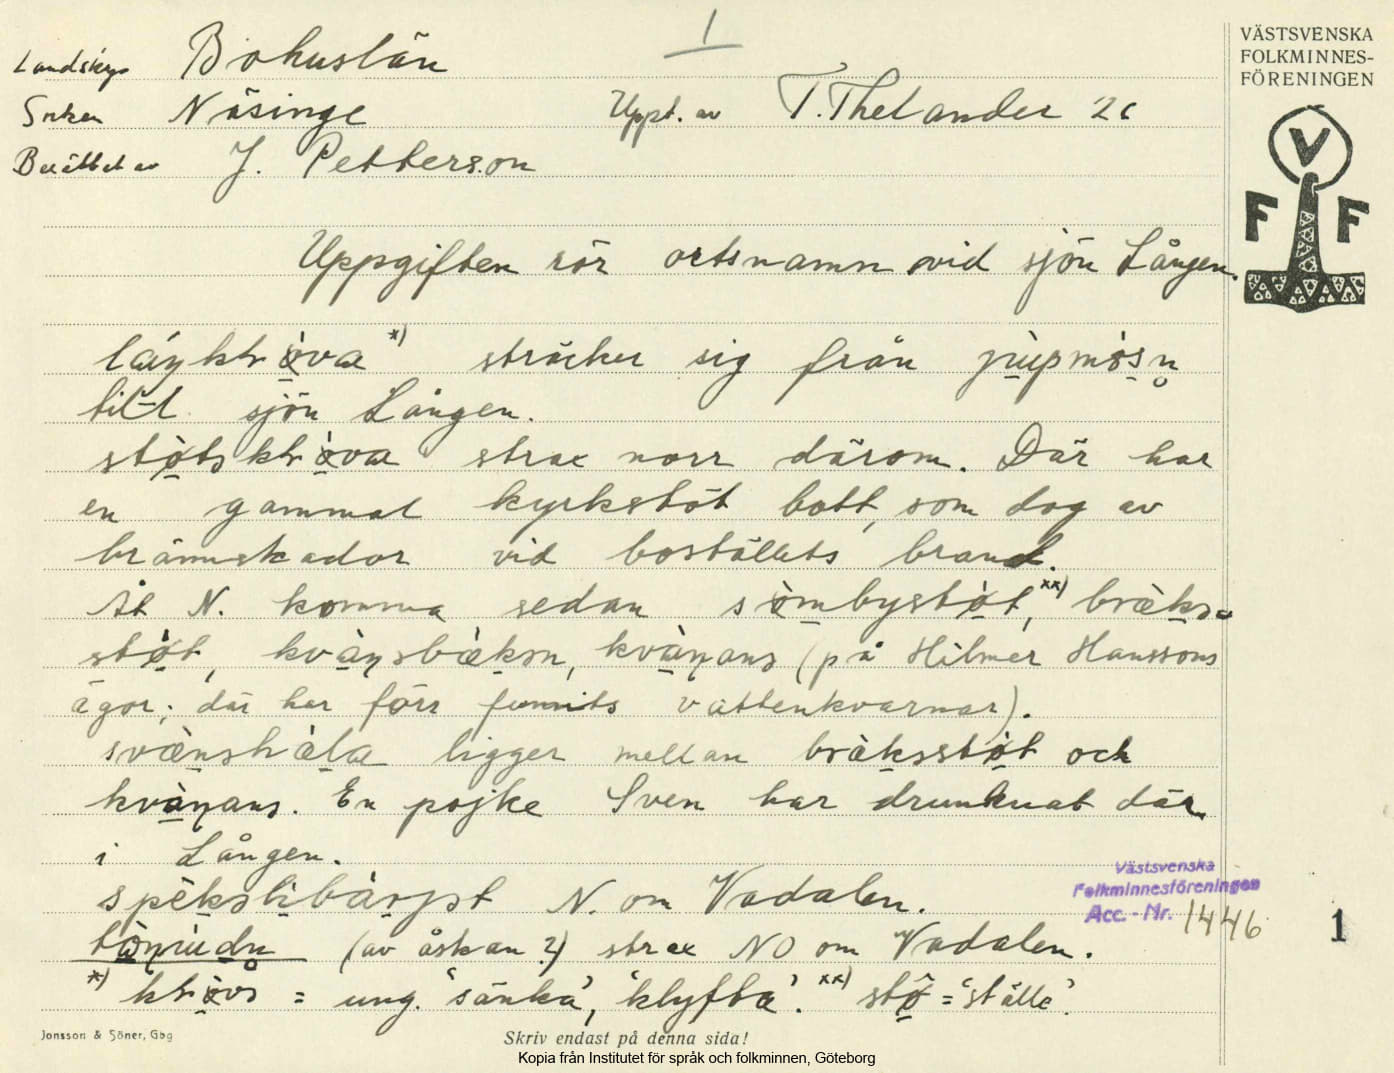 1
VÄSTSVENSKA
FOLKMINNES-
FÖRENINGEN
V
F F
Landskap Bohuslän
Socken Näsinge Uppt. av T. Thelander 26
Berättat av J. Petterson
Uppgiften rör ortsnamn vid sjön Lången.
sträcker sig från
till sjön Lången.
strax norr därom. Där har
en gammal kyrkstöt bott, som dog av
brännskador vid boställets brand.
Åt N. komma sedan
(på Hilmer Hanssons
ägor; där har förr funnits vattenkvarnar).
ligger mellan och
En pojke Sven har drunknat där
i Lången.
N. om Vadalen.
(av åskan?) strax NO om Vadalen.
*) = ung. 'sänka', 'klyfta'. xx) stö = 'ställe'.
Västsvenska
Folkminnesföreningen
Acc. - Nr. 1446
1
Jonsson & Söner, Gbg
Skriv endast på denna sida!
Kopia från Institutet för språk och folkminnen, Göteborg